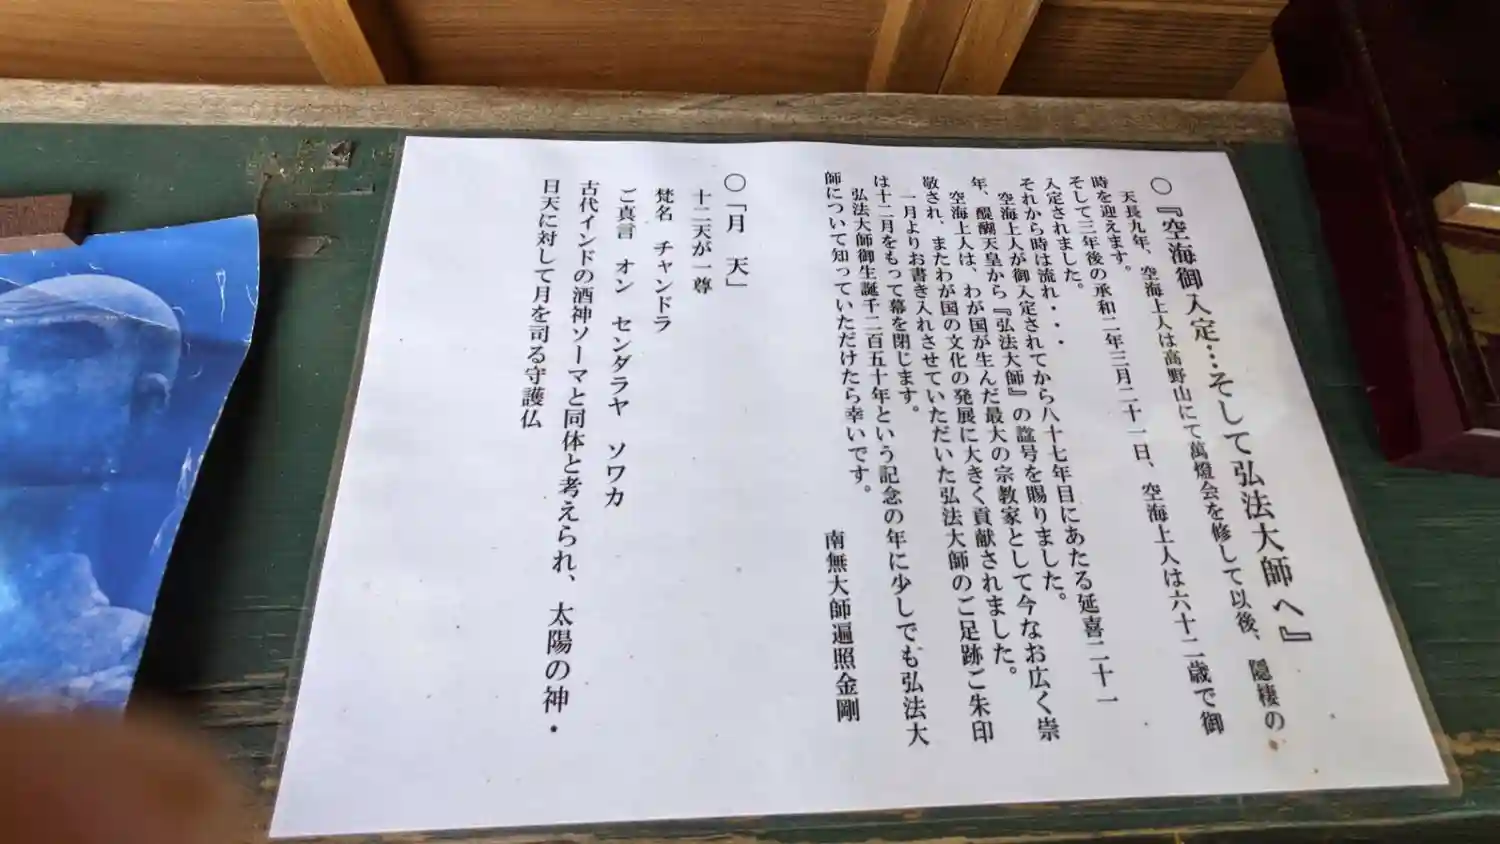 〇『空海御入定…そして弘法大師へ』
天長九年、空海上人は高野山にて萬燈会を修して以後、隠棲の
時を迎えます。
そして三年後の承和二年三月二十一日、空海上人は六十二歳で御
入定されました。
それから時は流れ・・・
空海上人が御入定されてから八十七年目にあたる延喜二十一
年、醍醐天皇から『弘法大師』の諡号を賜りました。
空海上人は、わが国が生んだ最大の宗教家として今なお広く崇
敬され、またわが国の文化の発展に大きく貢献されました。
一月よりお書き入れさせていただいた弘法大師のご足跡ご朱印
は十二月をもって幕を閉じます。
弘法大師御生誕千二百五十年という記念の年に少しでも弘法大
師について知っていただけたら幸いです。
南無大師遍照金剛
〇「月　天」
十二天が一尊
梵名　チャンドラ
ご真言　オン　センダラヤ　ソワカ
古代インドの酒神ソーマと同体と考えられ、太陽の神・
日天に対して月を司る守護仏